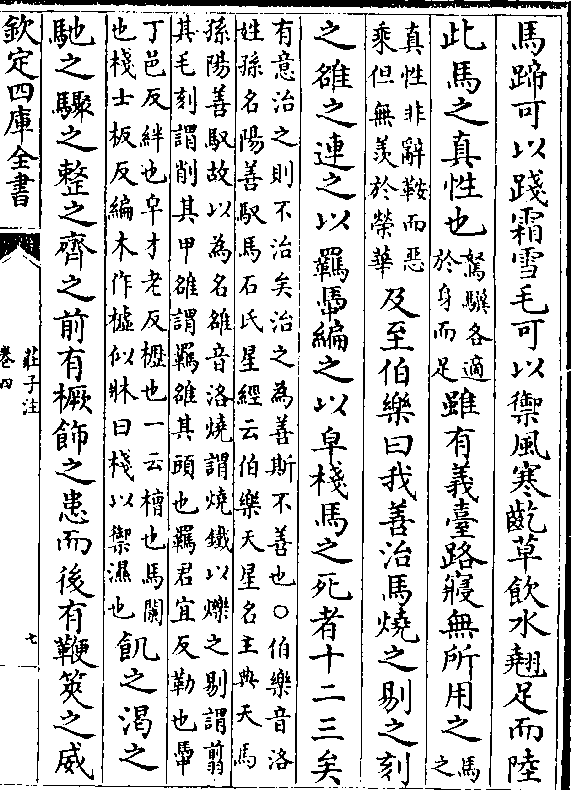 馬蹄可以踐霜雪毛可以禦風寒齕草飲水翹足而陸
此馬之真性也駑驥各適於身而足雖有義臺路寢無所用之馬之
真性非辭鞍而惡乘但無羨於榮華及至伯樂曰我善治馬燒之剔之刻
之雒之連之以羈馽編之以皁棧馬之死者十二三矣
有意治之則不治矣治之為善斯不善也○伯樂音洛
姓孫名陽善馭馬石氏星經云伯樂天星名主典天馬
孫陽善馭故以為名雒音洛燒謂燒鐵以爍之剔謂翦
其毛刻謂削其甲雒謂羈雒其頭也羈君宜反勒也馽
丁邑反絆也皁才老反櫪也一云槽也馬閑
也棧士板反編木作櫨似牀曰棧以禦濕也飢之渴之
馳之驟之整之齊之前有橛飾之患而後有鞭筴之威
欽定四庫全書
莊子注
卷四
七